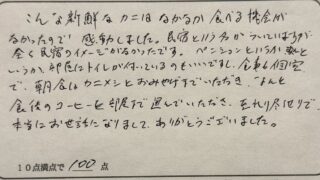 こんな新鮮なカニはなかなか食べる機会が
なかったので感動しました。民宿という名がついていますが
全く民宿のイメージがなかったです。ペンションというか宿と
いうか、部屋にトイレが付いているのもいいですし、食事も個室
で、朝食はカニメシとおみやげまでいただき、なんと
食後のコーヒーを部屋まで運んでいただき、至れり尽せりで、
本当にお世話になりまして、ありがとうございました。
10点満点で 100 点